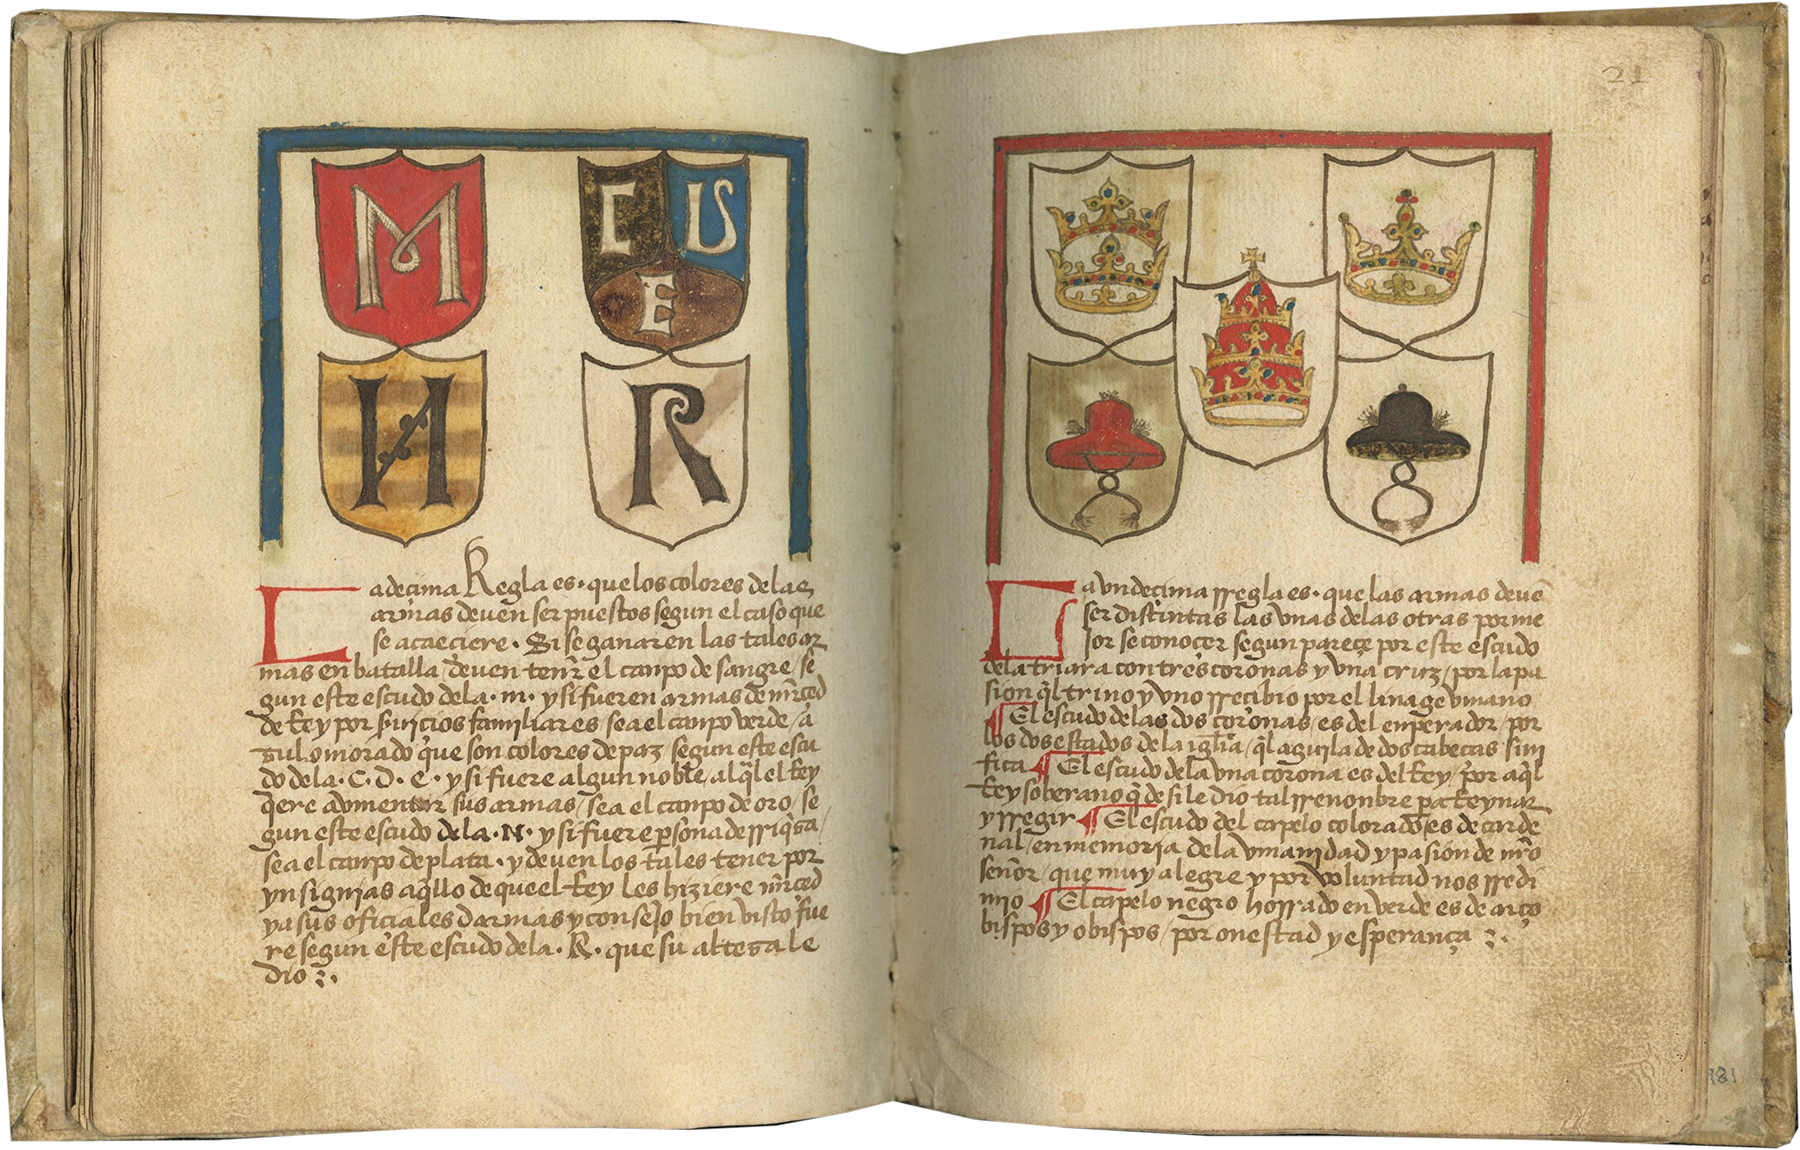 M
C D
E
N
R
La decima Regla es · que los colores de las
armas deven ser puestos segun el caso que
se acaeciere · Si se ganaren las tales ar
mas en batalla / deven tenr̄ el canpo de sangre / se
gun este escudo de la · m · y si fueren armas de mr̄ced
de Rey por sus̄icios familiares / sea el canpo verde / a
zul o morado q̄ue son colores de paz / segun este escu
do de la · C · D · E · y si fuere algun noble / al q̄l el Rey
q̄ere aumentar sus armas / sea el canpo de oro / se
gun este escudo de la · N · y si fuere p̄sona de rriq̄za /
sea el canpo de plata · y deven los tales tener por
ynsignias aq̄llo de que el Rey les hiziere mr̄ced
ya sus oficiales darmas y consejo bien visto fue
re segun este escudo de la · R · que su alteza le
dio
21
La undecima rregla es · que las armas deuē
ser distintas las unas de las otras por me
jor se conocer segun pareçe por este escudo
de la triara con tres coronas y una cruz / por la pa
sion q̄l trino y uno rrecibio por el linage umano
¶ El escudo de las dos coronas / es del enperador / por
los dos estados de la iglīa / q̄l aguila de dos cabeças sini
fica ¶ El escudo de la una corona es del Rey / por aq̄l
Rey soberano q̄ de si le dio tal rrenonbre pa Reynar
y rregir ¶ El escudo del capelo colorado / es de carde
nal / en memoria de la umanidad y pasion de nr̄o
señor / que muy alegre y por voluntad nos rredi
mio ¶ El capelo negro horrado en verde es de arço
bispos y obispos / por onestad y esperança
181